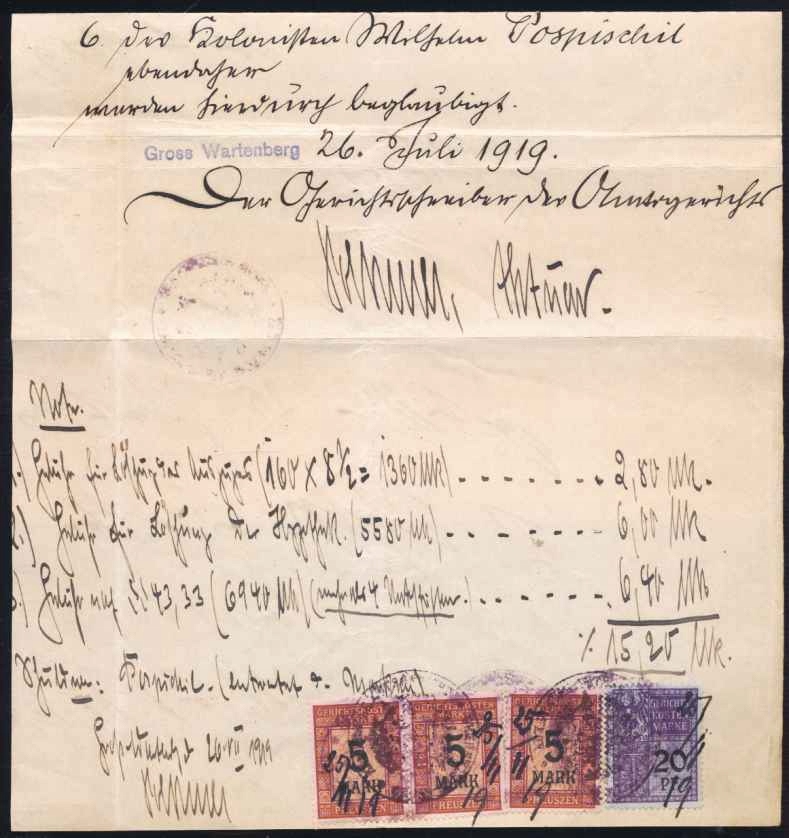 6. des Kolonisten Wilhelm Pospischil
ebendaher
werden hierdurch beglaubigt.
Gross Wartenberg 26. Juli 1919.
Der Gerichtsschreiber des Amtsgerichts
Aktuar.
Nota.
1.) Gebühr für Löschung des Auszuges (160 x 8½ = 1360 Mk) - - - - - - - 2,80 Mk.
2.) Gebühr für Löschung der Hypothek. (5580 Mk) - - - - - - - 6,00 Mk
3.) Gebühr nach §§ 43,33 (6940 Mk) (mehr als 4 Unterschriften.) - - - - - - 6,40 Mk
15,20 Mk.
Schuldner: Pospischil.
26 VII 1919
GERICHTSKOSTEN MARKE 5 MARK PREUSZEN
GERICHTSKOSTEN MARKE 5 MARK PREUSZEN
GERICHTSKOSTEN MARKE 5 MARK PREUSZEN
GERICHTS KOSTEN MARKE 20 PF